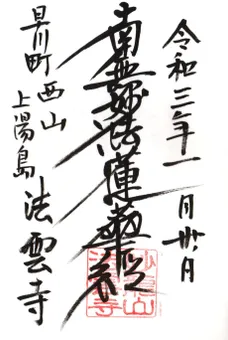 令和三年一月廿日
南無妙法蓮華経
早川町西山
上湯島
法雲寺